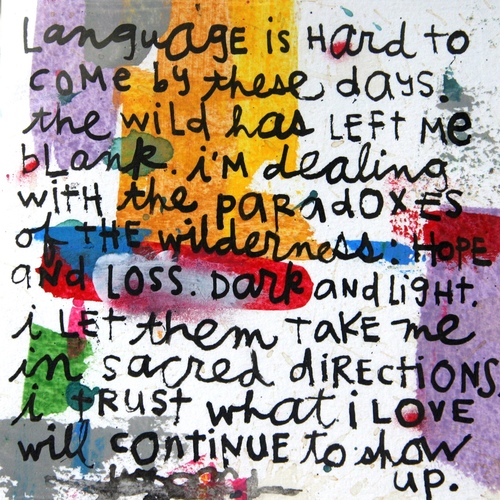 Language is Hard to
come by these days.
the wild has LEFT Me
blank. i'm dealing
with the paradoxes
of THE wilderness: HOPE
and LOSS. Dark and LigHT.
i LET them TAKE me
in sacred diRECtiONS
i tRUST what i LOVE
will CONTINUE to show
up.